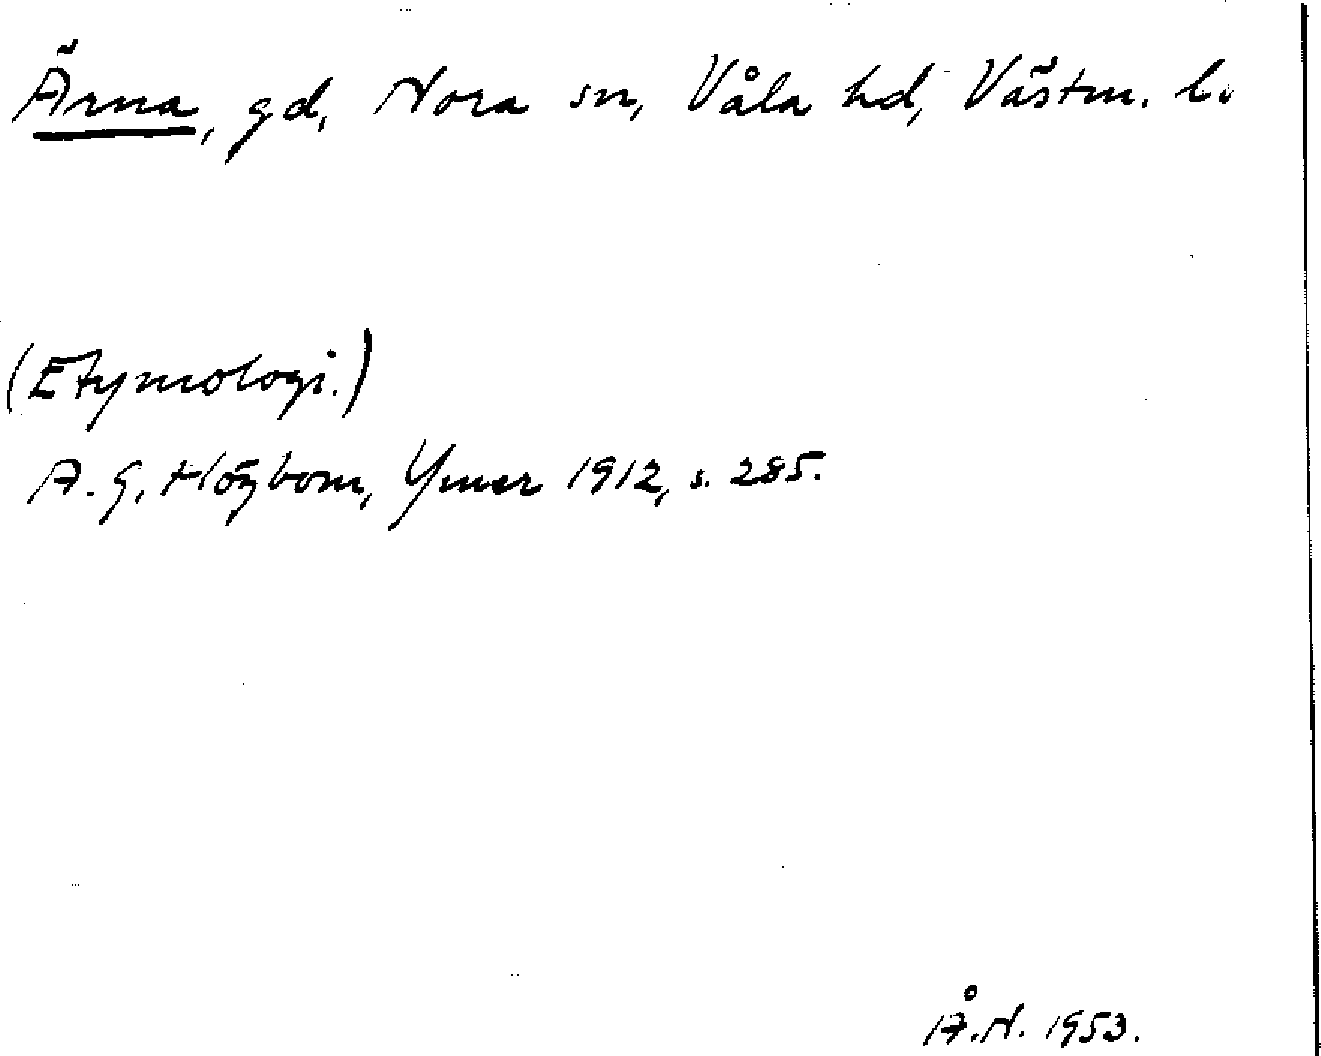 Ärna, gd, Nora sn, Våla hd, Västm. l.
(Etymologi.)
A. G. Högbom, Ymer 1912, s. 285.
Å.N. 1953.